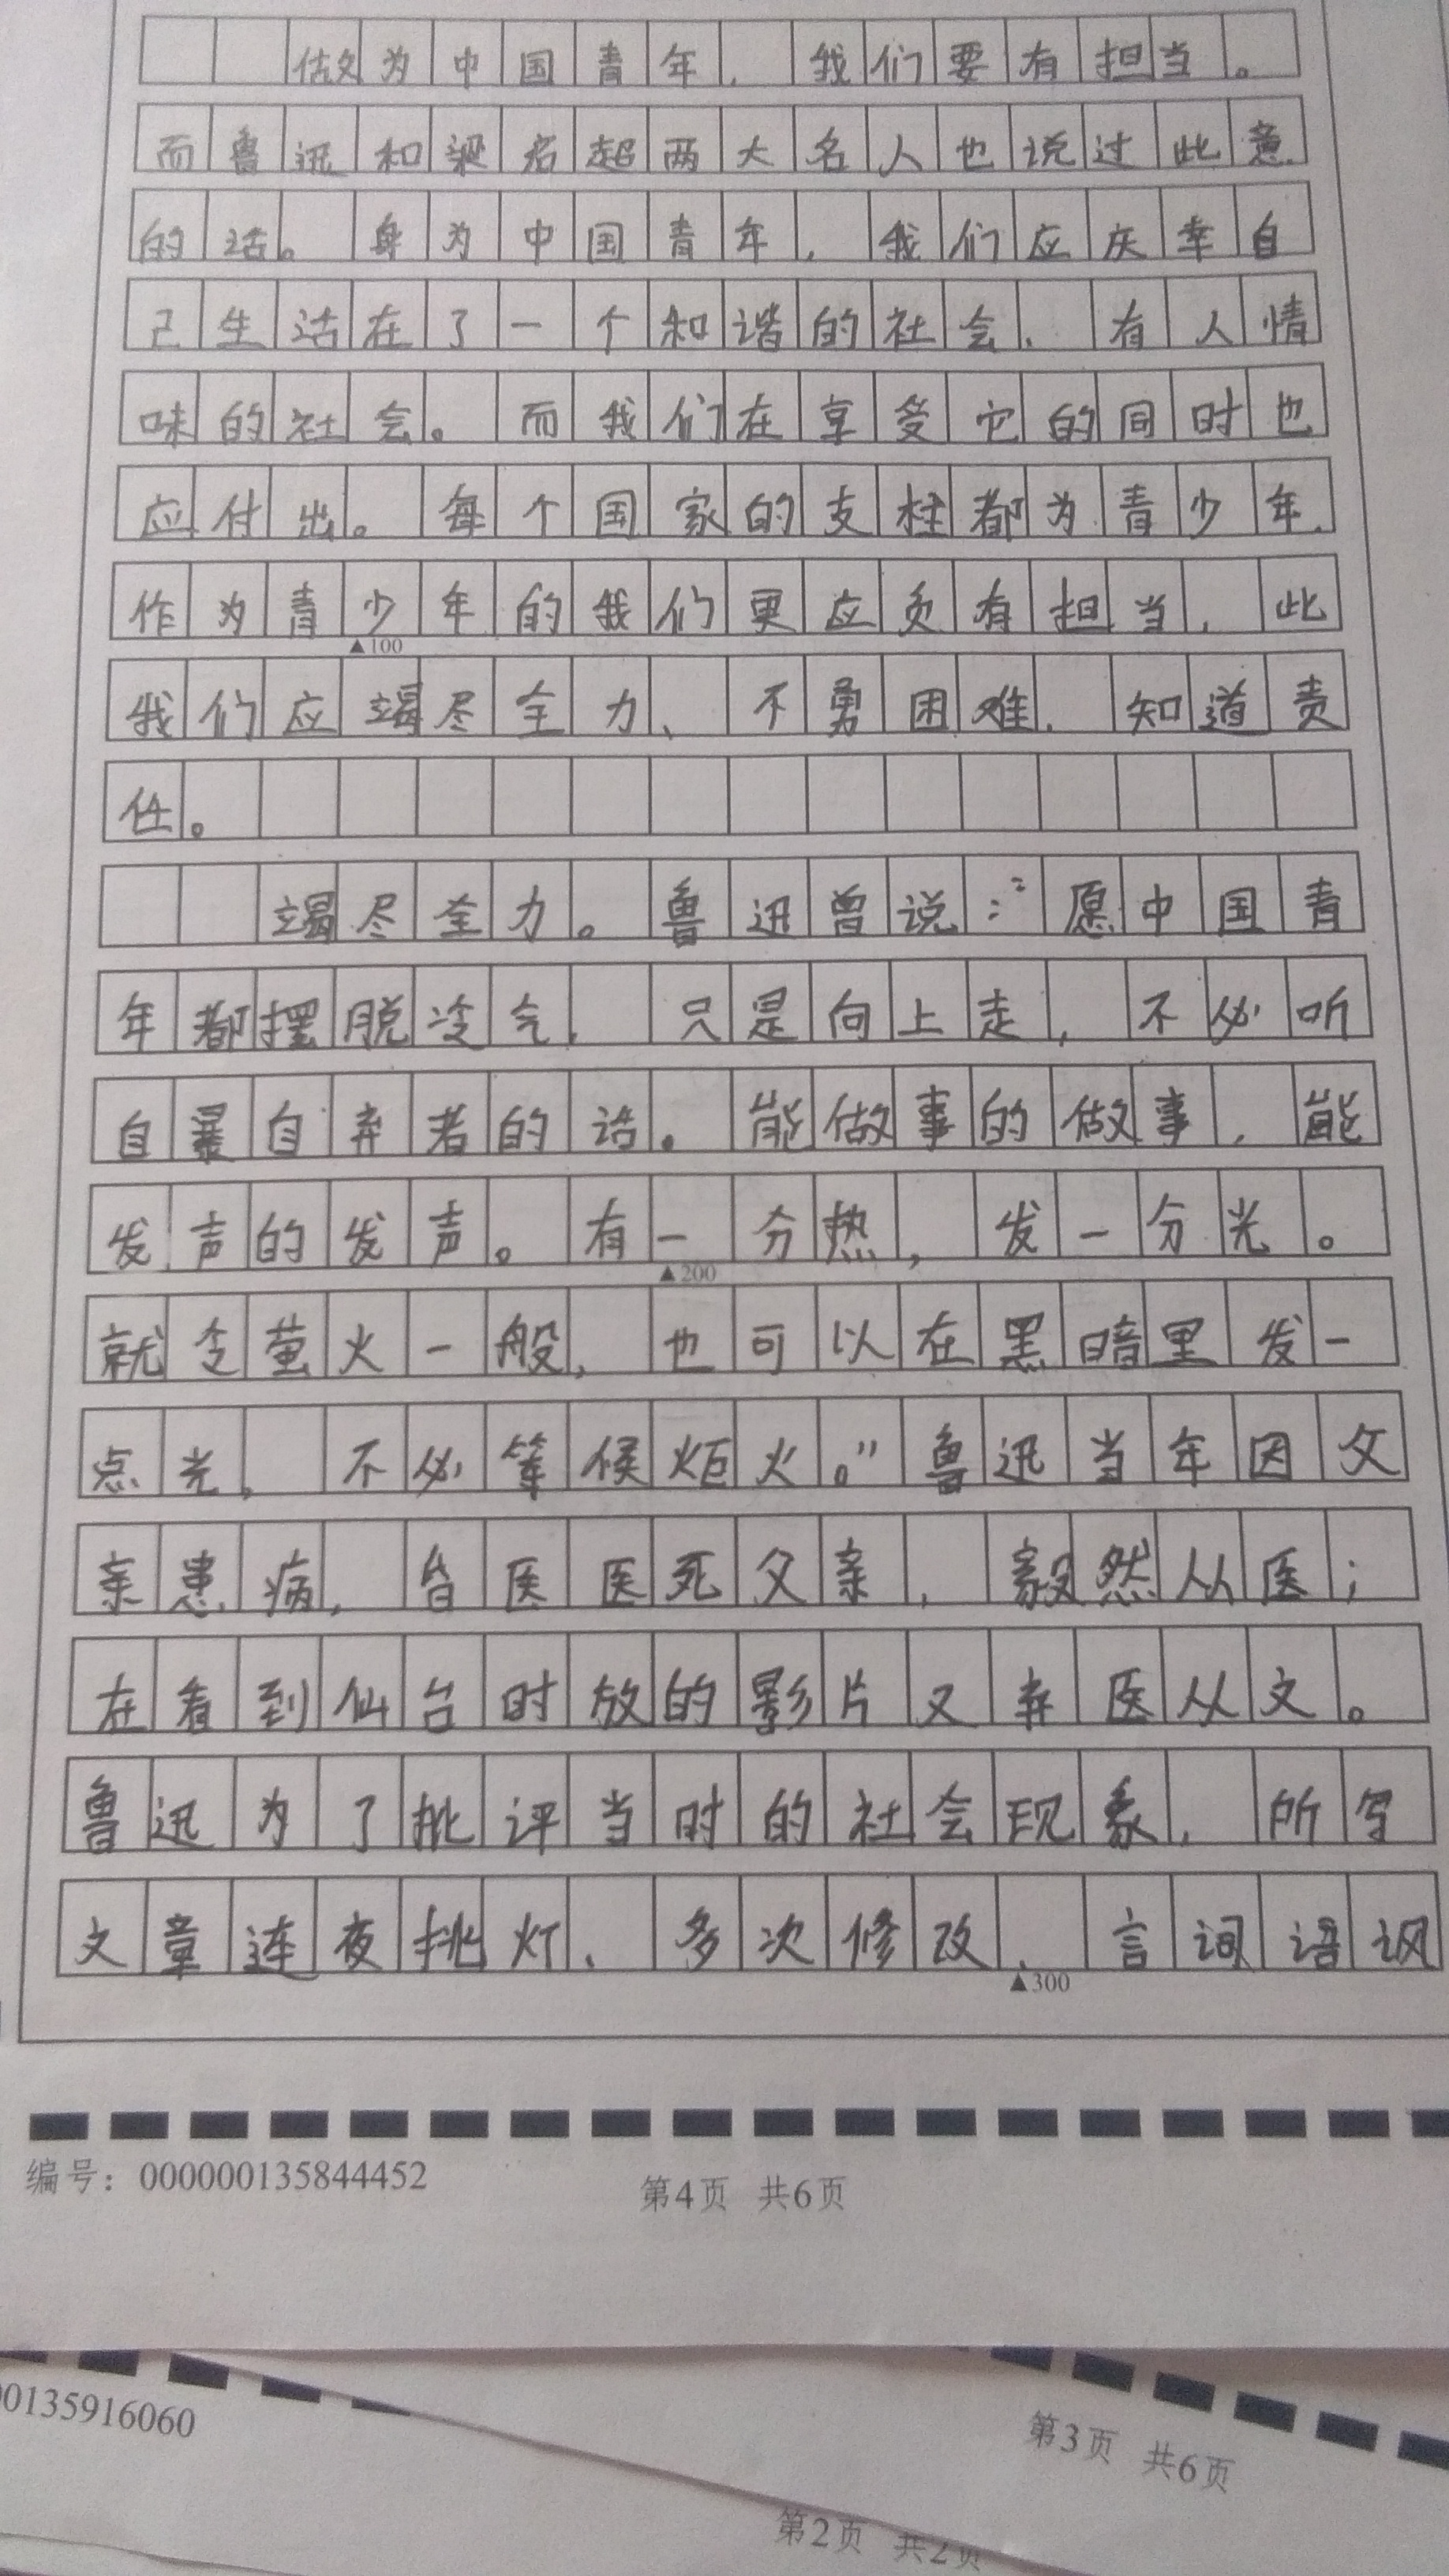 做为中国青年，我们要有担当。
而鲁迅和梁启超两大名人也说过此意
的话。身为中国青年，我们应庆幸自
己生活在了一个和谐的社会、有人情
味的社会。而我们在享受它的同时也
应付出。每个国家的支柱都为青少年，
作为青少年的我们更应负有担当，此
▲100
我们应竭尽全力、不勇困难、知道责
任。
竭尽全力。鲁迅曾说："愿中国青
年都摆脱冷气，只是向上走，不必听
自暴自弃者的话。能做事的做事，能
发声的发声。有一分热，发一分光。
▲200
就令萤火一般，也可以在黑暗里发一
点光，不必等候炬火。"鲁迅当年因父
亲患病，昏医医死父亲，毅然从医；
在看到仙台时放的影片又弃医从文。
鲁迅为了批评当时的社会现象，所写
文章连夜挑灯、多次修改、言词语讽
▲300
编号：000000135844452 第4页 共6页
00135916060 第3页 共6页
第2页 共2页